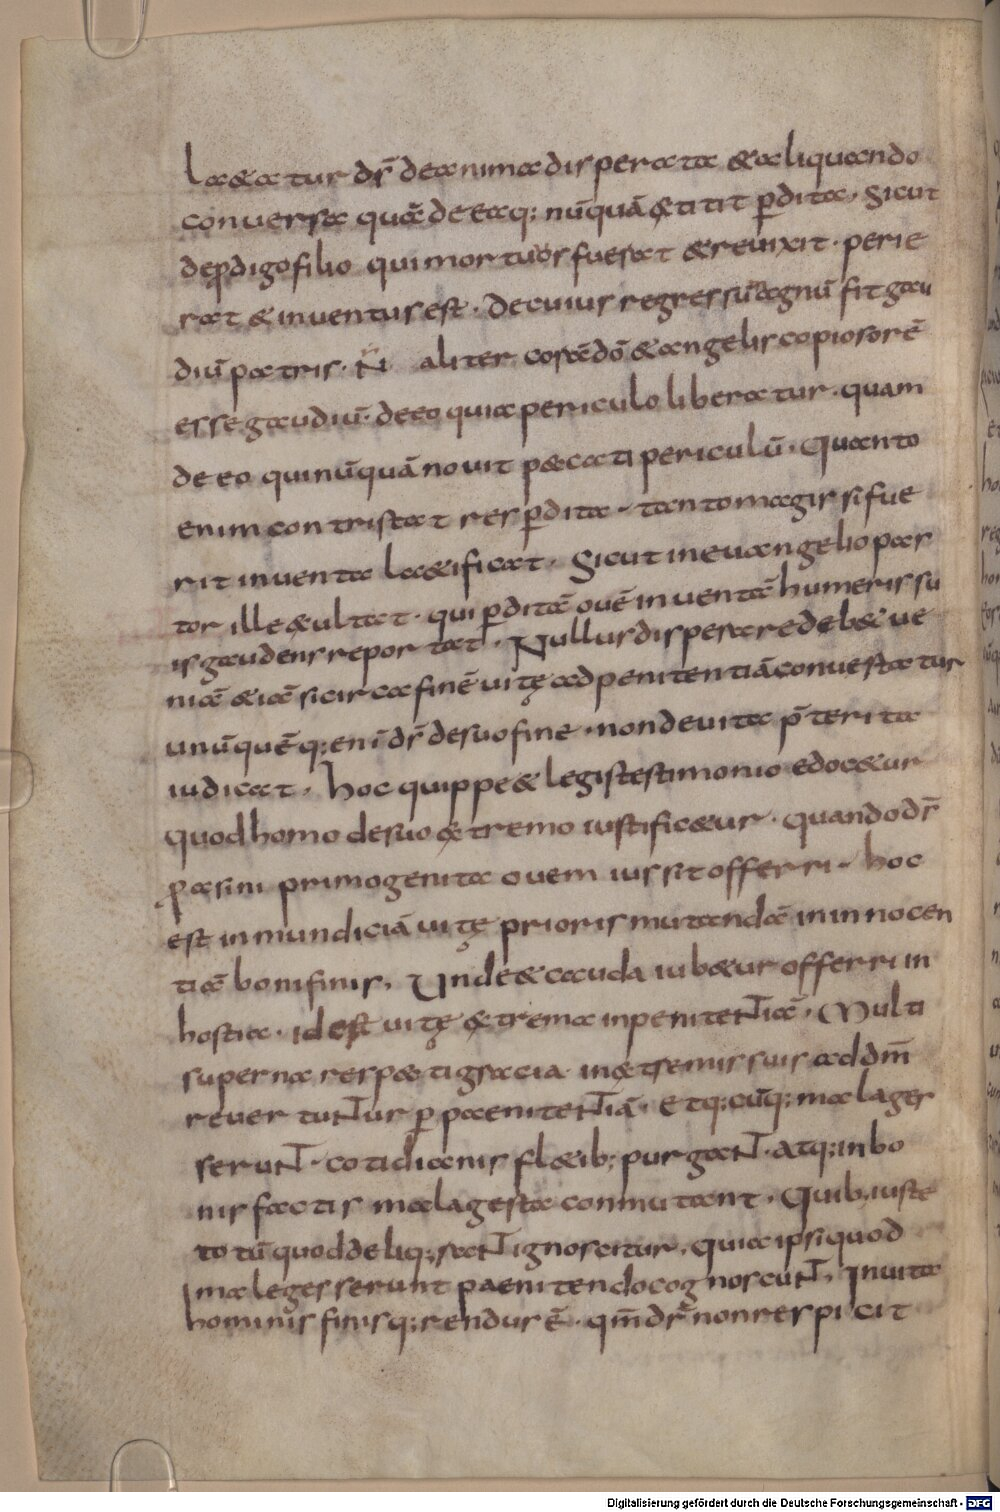 Lae&atur d̄s de anima disperata & aliquando
conversa quā de eaq; nūquā extitit ꝑdita. Sicut
de ꝓdigo filio qui mortuus fuerat & revixit. perie
rat & inventus est. De cuius regressu magnū fit gau
diū patris. N̄ aliter coram dō & angelis copiosorē
esse gaudiū. de eo qui a periculo liberatur. quam
de eo qui nūquā novit peccati periculū. Quanto
enim contristat res ꝑdita. tanto magis si fue
rit inventa lae&ificat. Sicut in evangelio pas
tor ille exultat. qui ꝑditā ovē inventā humeris su
is gaudens reportat. Nullus disperare deb& ve
niā & iā si circa finē vitę ad penitentiā convertatur
unūquēq; enī d̄s de suo fine. non de vita p̄terita
iudicat. hoc quippe & legis testimonio edoc&ur
quod homo de suo extremo iustific&ur. quando d̄s
ꝓ asini primogenita ovem iussit offerri. hoc
est inmundiciā vitę prioris mutandā in innocen
tiā boni finis. Unde & cauda iub&ur offerri in
hostia. id est vitę extrema in penitentia. Multi
superna respecti gracia. in extremis suis ad dm̄
revertuntur ꝑ paenitentiā. Et q;cūq; mala ges
serunt. cotidianis fl&ib; purgant. atq; in bo
nis factis mala gesta conmutant. Quib; iuste
totū quod deliq;rant ignoscitur. quia ipsi quod
male gesserunt paenitendo cognoscunt. In vita
hominis finis q;rendus ē. qm̄ d̄s non respicit
Digitalisierung gefördert durch die Deutsche Forschungsgemeinschaft - DFG